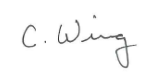 C. Wing